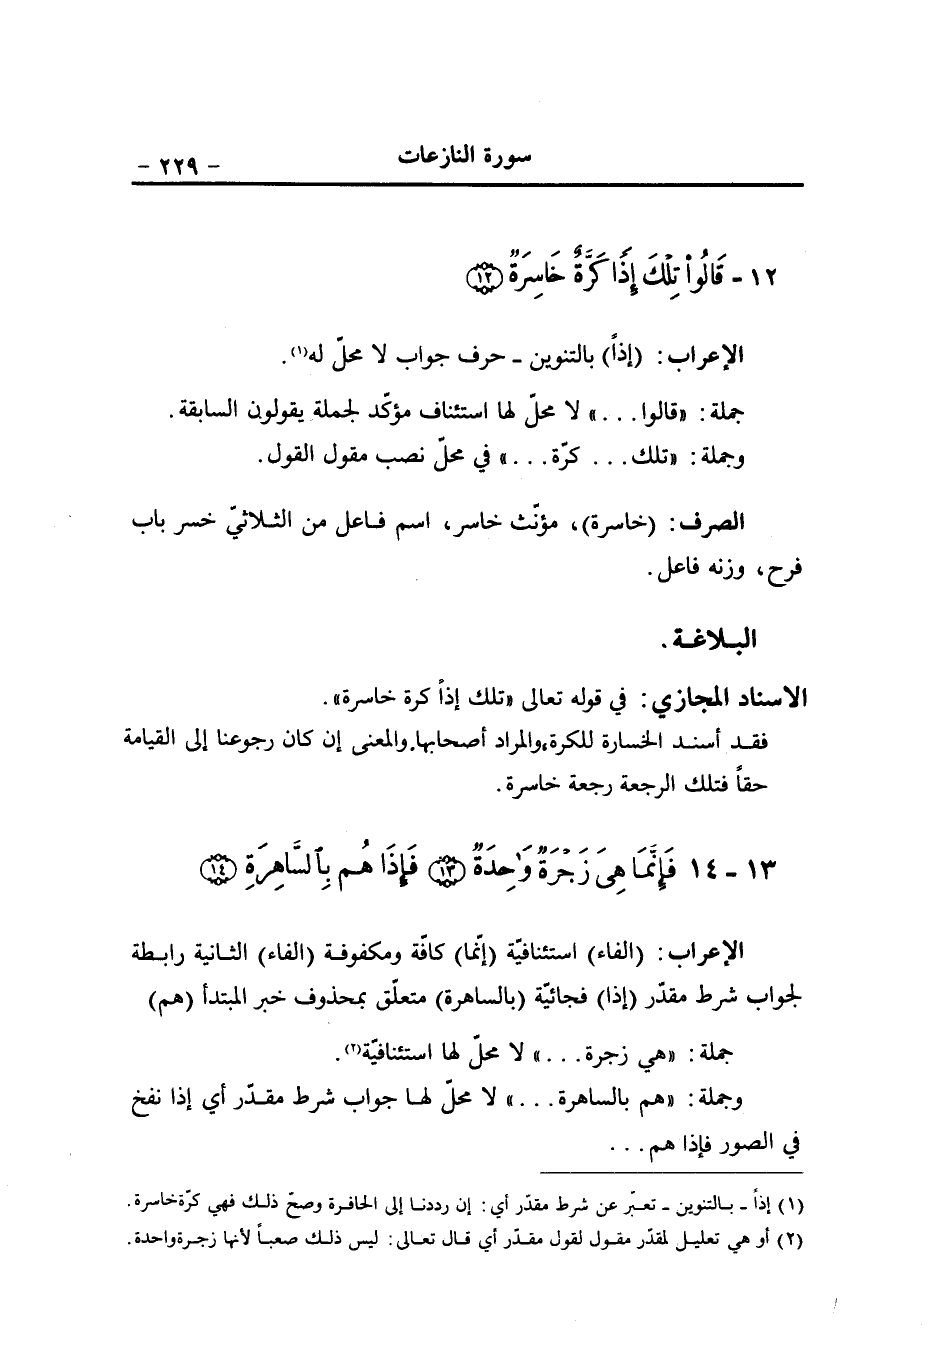 سورة النازعات
- ٢٢٩ -
١٢ - قَالُواْ تِلْكَ إِذًا كَرَّةٌ خَاسِرَةٌ ١٢
الإعراب: (إذاً) بالتنوين - حرف جواب لا محلّ له(١).
جملة: «قالوا...» لا محلّ لها استئناف مؤكّد لجملة يقولون السابقة.
وجملة: «تلك... كرّة...» في محلّ نصب مقول القول.
الصرف: (خاسرة)، مؤنّث خاسر، اسم فاعل من الثلاثيّ خسر باب
فرح، وزنه فاعل.
البلاغة.
الاسناد المجازي: في قوله تعالى «تلك إذاً كرة خاسرة».
فقد أسند الخسارة للكرة، والمراد أصحابها. والمعنى إن كان رجوعنا إلى القيامة
حقاً فتلك الرجعة رجعة خاسرة.
١٣ - ١٤ فَإِنَّمَا هِيَ زَجْرَةٌ وَٰحِدَةٌ ١٣ فَإِذَا هُم بِٱلسَّاهِرَةِ ١٤
الإعراب: (الفاء) استئنافيّة (إنّما) كافّة ومكفوفة (الفاء) الثانية رابطة
لجواب شرط مقدّر (إذا) فجائيّة (بالساهرة) متعلّق بمحذوف خبر المبتدأ (هم)
جملة: «هي زجرة...» لا محلّ لها استئنافيّة(٢).
وجملة: «هم بالساهرة...» لا محلّ لها جواب شرط مقدّر أي إذا نفخ
في الصور فإذا هم...
(١) إذاً - بالتنوين - تعبّر عن شرط مقدّر أي: إن رددنا إلى الحافرة وصحّ ذلك فهي كرّة خاسرة.
(٢) أو هي تعليل لمقدّر مقول لقول مقدّر أي قال تعالى: ليس ذلك صعباً لأنها زجرة واحدة.